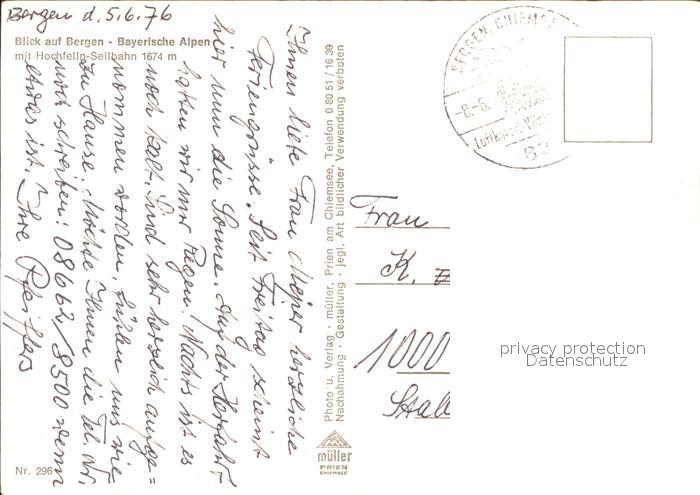 Bergen d. 5.6.76
Blick auf Bergen - Bayerische Alpen
mit Hochfelln-Seilbahn 1674 m
Ihnen liebe Frau Meyer herzliche
Feriengrüsse. Seit Freitag scheint
hier nun die Sonne. Auf der Herfahrt
hatten wir nur Regen. Nachts ist es
noch kalt. Sind sehr herzlich aufge=
nommen worden, fühlen uns wie
zu Hause. Möchte Ihnen die Tel. Nr.
noch schreiben: 08662/8500 wenn
etwas ist. Ihre Pfeiffers
Nr. 296
Photo u. Verlag · müller, Prien am Chiemsee, Telefon 0 80 51 / 16 39
Nachahmung · Gestaltung · jegl. Art bildlicher Verwendung verboten
müller
PRIEN
CHIEMSEE
BERGEN, CHIEMG
-8.-6.
82
Frau
K.
1000
privacy protection
Datenschutz